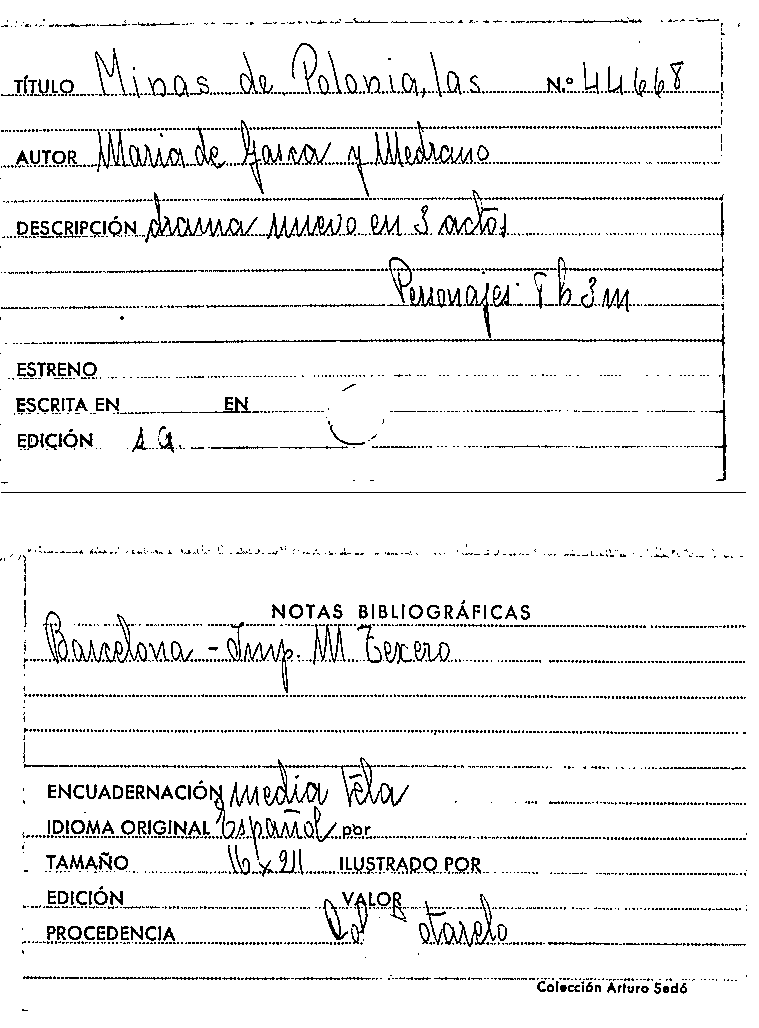 TÍTULO Minas de Polonia, las N.º 44668
AUTOR Maria de Gasca y Medrano
DESCRIPCIÓN drama nuevo en 3 actos
Personajes: 3m
ESTRENO
ESCRITA EN EN
EDICIÓN s a
NOTAS BIBLIOGRÁFICAS
Barcelona - Imp. M Texero
ENCUADERNACIÓN media tela
IDIOMA ORIGINAL Español por
TAMAÑO ILUSTRADO POR
EDICIÓN VALOR
PROCEDENCIA
Colección Arturo Sedó